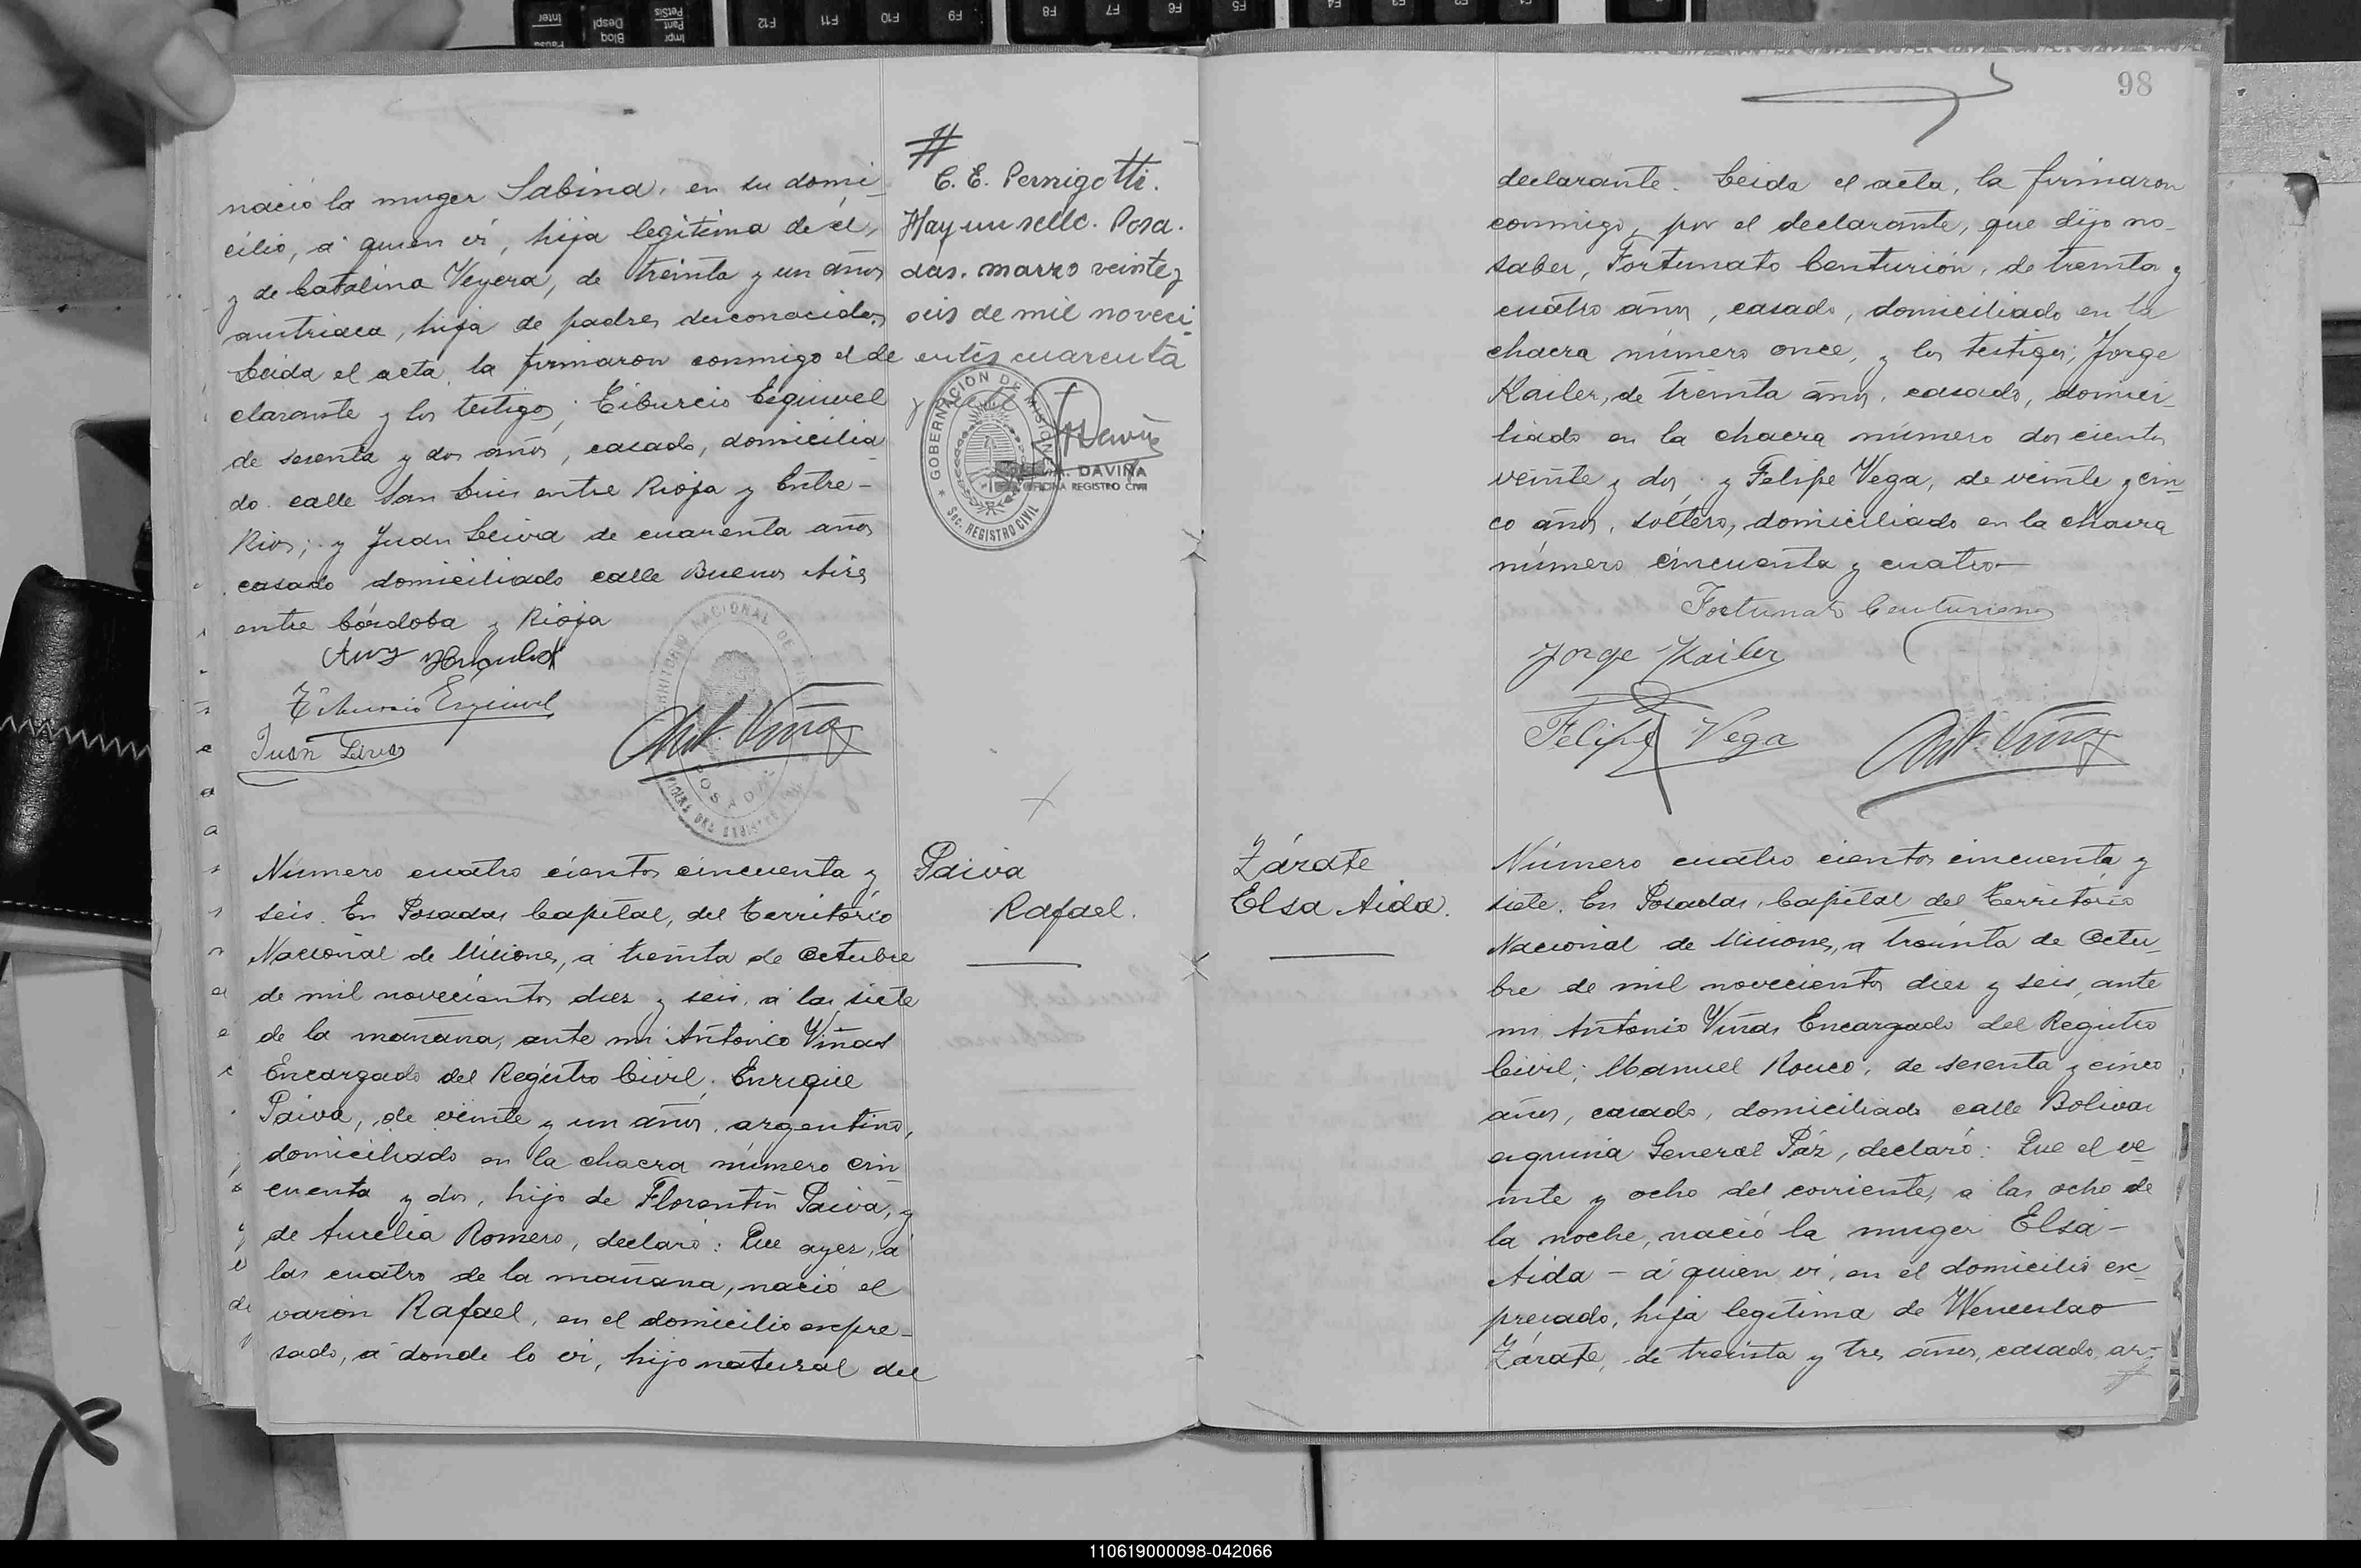 nació la muger Sabina, en su domi-
cilio, á quien ví, hija legitima de él,
y de Catalina Veyera, de treinta y un años
austriaca, hija de padres desconocidos.
Leida el acta, la firmaron conmigo el de
clarante y los testigos; Tiburcio Esquivel
de sesenta y dos años, casado, domicilia
do calle San Luis entre Rioja y Entre-
Rios; y Juan Leiva de cuarenta años
casado domiciliado calle Buenos Aires
entre Córdoba y Rioja
Tiburcio Esquivel
Juan Leiva
Ant. Viñas
TERRITORIO NACIONAL DE
POSADAS
#
C. E. Pernigotti.
Hay un sello. Posa.
das. marzo veinte y
seis de mil noveci-
entos cuarenta
y
GOBERNACION DE MISIONES
Sec. REGISTRO CIVIL
A. DAVIÑA
OFICINA REGISTRO CIVIL
Número cuatro cientos cincuenta y
seis. En Posadas Capital, del Territorio
Nacional de Misiones, á treinta de Octubre
de mil novecientos diez y seis, á las siete
de la mañana, ante mi Antonio Viñas
Encargado del Registro Civil; Enrique
Paiva, de veinte y un años, argentino,
domiciliado en la chacra número cin
cuenta y dos, hijo de Florentin Paiva, y
de Aurelia Romero, declaró: Que ayer, á
las cuatro de la mañana, nació el
varón Rafael, en el domicilio expre-
sado, á donde lo ví, hijo natural del
Paiva
Rafael.
98
declarante. Leida el acta, la firmaron
conmigo, por el declarante, que dijo no-
saber, Fortunato Centurión, de treinta y
cuatro años, casado, domiciliado en la
chacra número once, y los testigos; Jorge
Kailer, de treinta años, casado, domici-
liado en la chacra número dos cientos
veinte y dos, y Felipe Vega, de veinte y cin-
co años, soltero, domiciliado en la chacra
número cincuenta y cuatro—
Fortunato Centurion
Jorge Kailer
Felipe Vega
Ant. Viñas
Zárate
Elsa Aida.
Número cuatro cientos cincuenta y
siete. En Posadas, Capital del Territorio
Nacional de Misiones, a treinta de Octu-
bre de mil novecientos diez y seis, ante
mi Antonio Viñas Encargado del Registro
Civil; Manuel Rouco, de sesenta y cinco
años, casado, domiciliado calle Bolivar
esquina General Páz, declaró: Que el ve-
inte y ocho del corriente, a las ocho de
la noche, nació la muger Elsa-
Aida - á quien ví, en el domicilio ex-
presado, hija legitima de Wenceslao
Zárate, de treinta y tres años, casado, ar-
Inter
Pausa
Despl
Bloq
PetSis
Pant
Impr
F12
F11
F10
F9
F8
F7
F6
F5
F4
F3
F2
F1
110619000098-042066